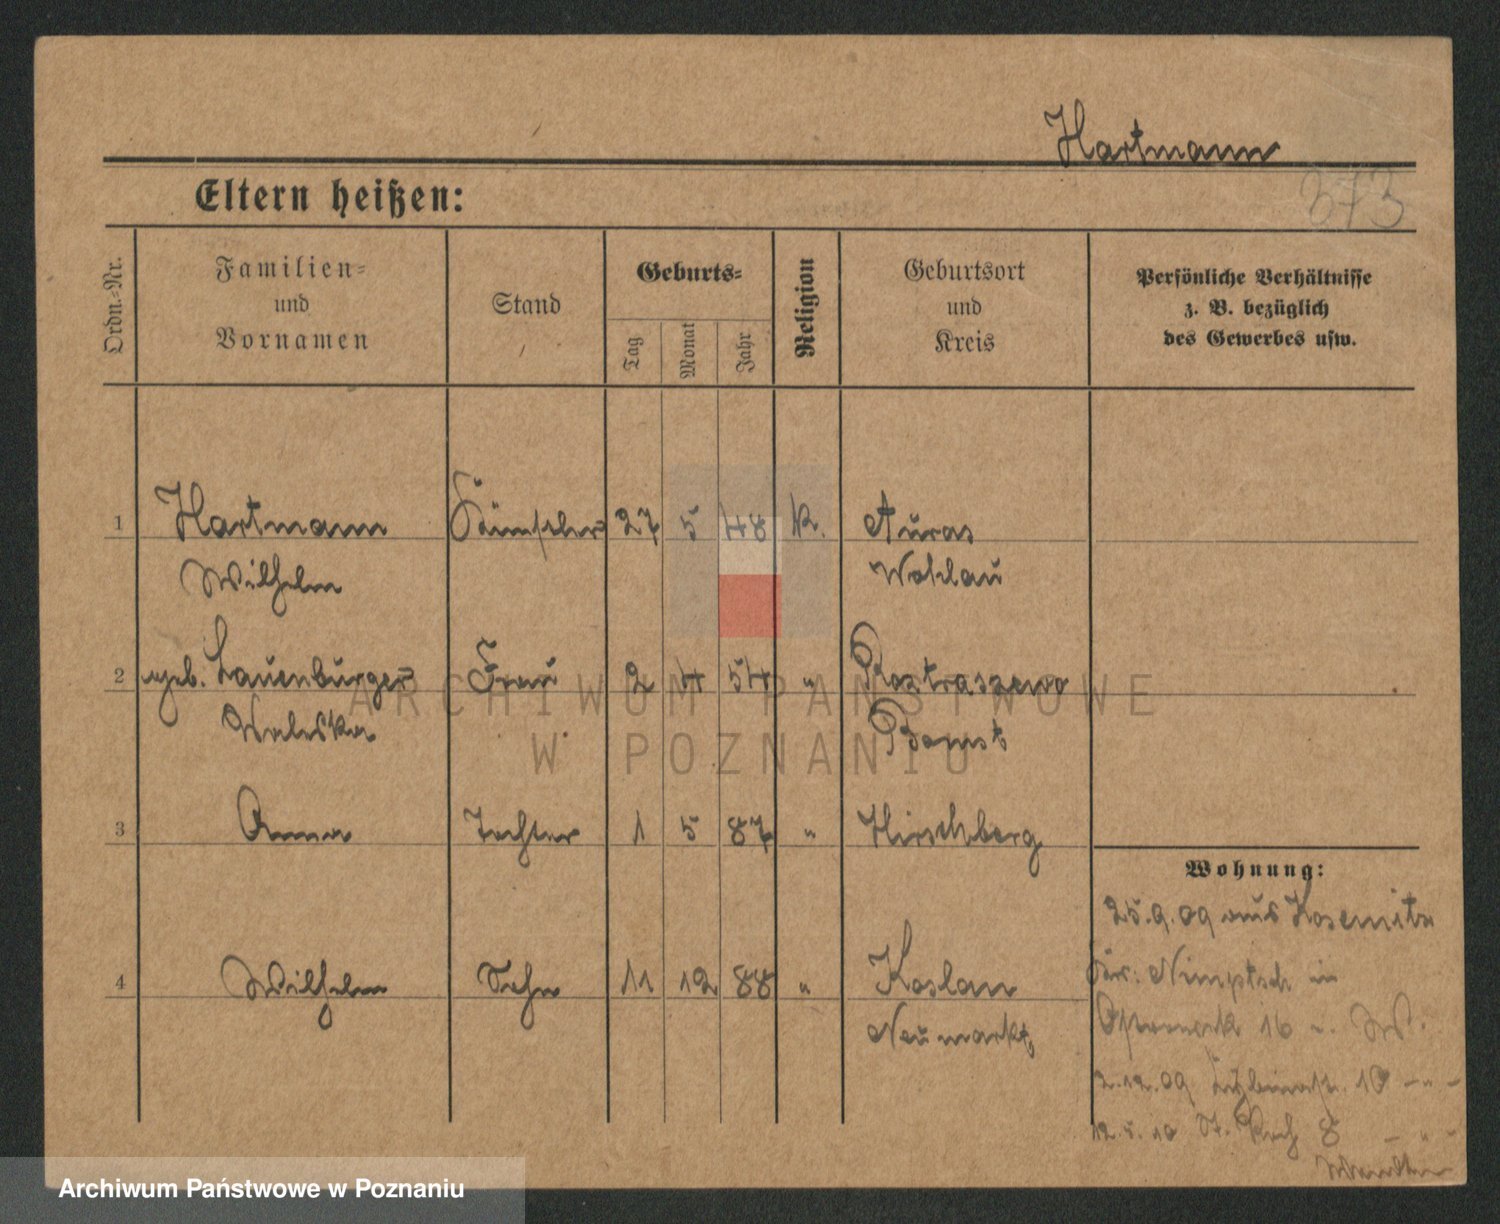 Hartmann
373
Eltern heißen:
Ordn.-Nr.
Familien-
und
Vornamen
Stand
Geburts-
Tag
Monat
Jahr
Religion
Geburtsort
und
Kreis
Persönliche Verhältnisse
z. B. bezüglich
des Gewerbes usw.
1 Hartmann Künstler 27 5 48 k. Auras
Wilhelm Wohlau
2 geb. Lauenburger Frau 2 4 54 " Roztraszewo
Valeska Bomst
3 Anna Tochter 1 5 87 " Hirschberg
4 Wilhelm Sohn 11 12 88 " Koslau
Neumarkt
Wohnung:
25.9.09 aus Kosemitz
Nimptsch in
16
2.12.09 10 - " -
10 St. 8 - " -
ARCHIWUM PAŃSTWOWE
W POZNANIU
Archiwum Państwowe w Poznaniu